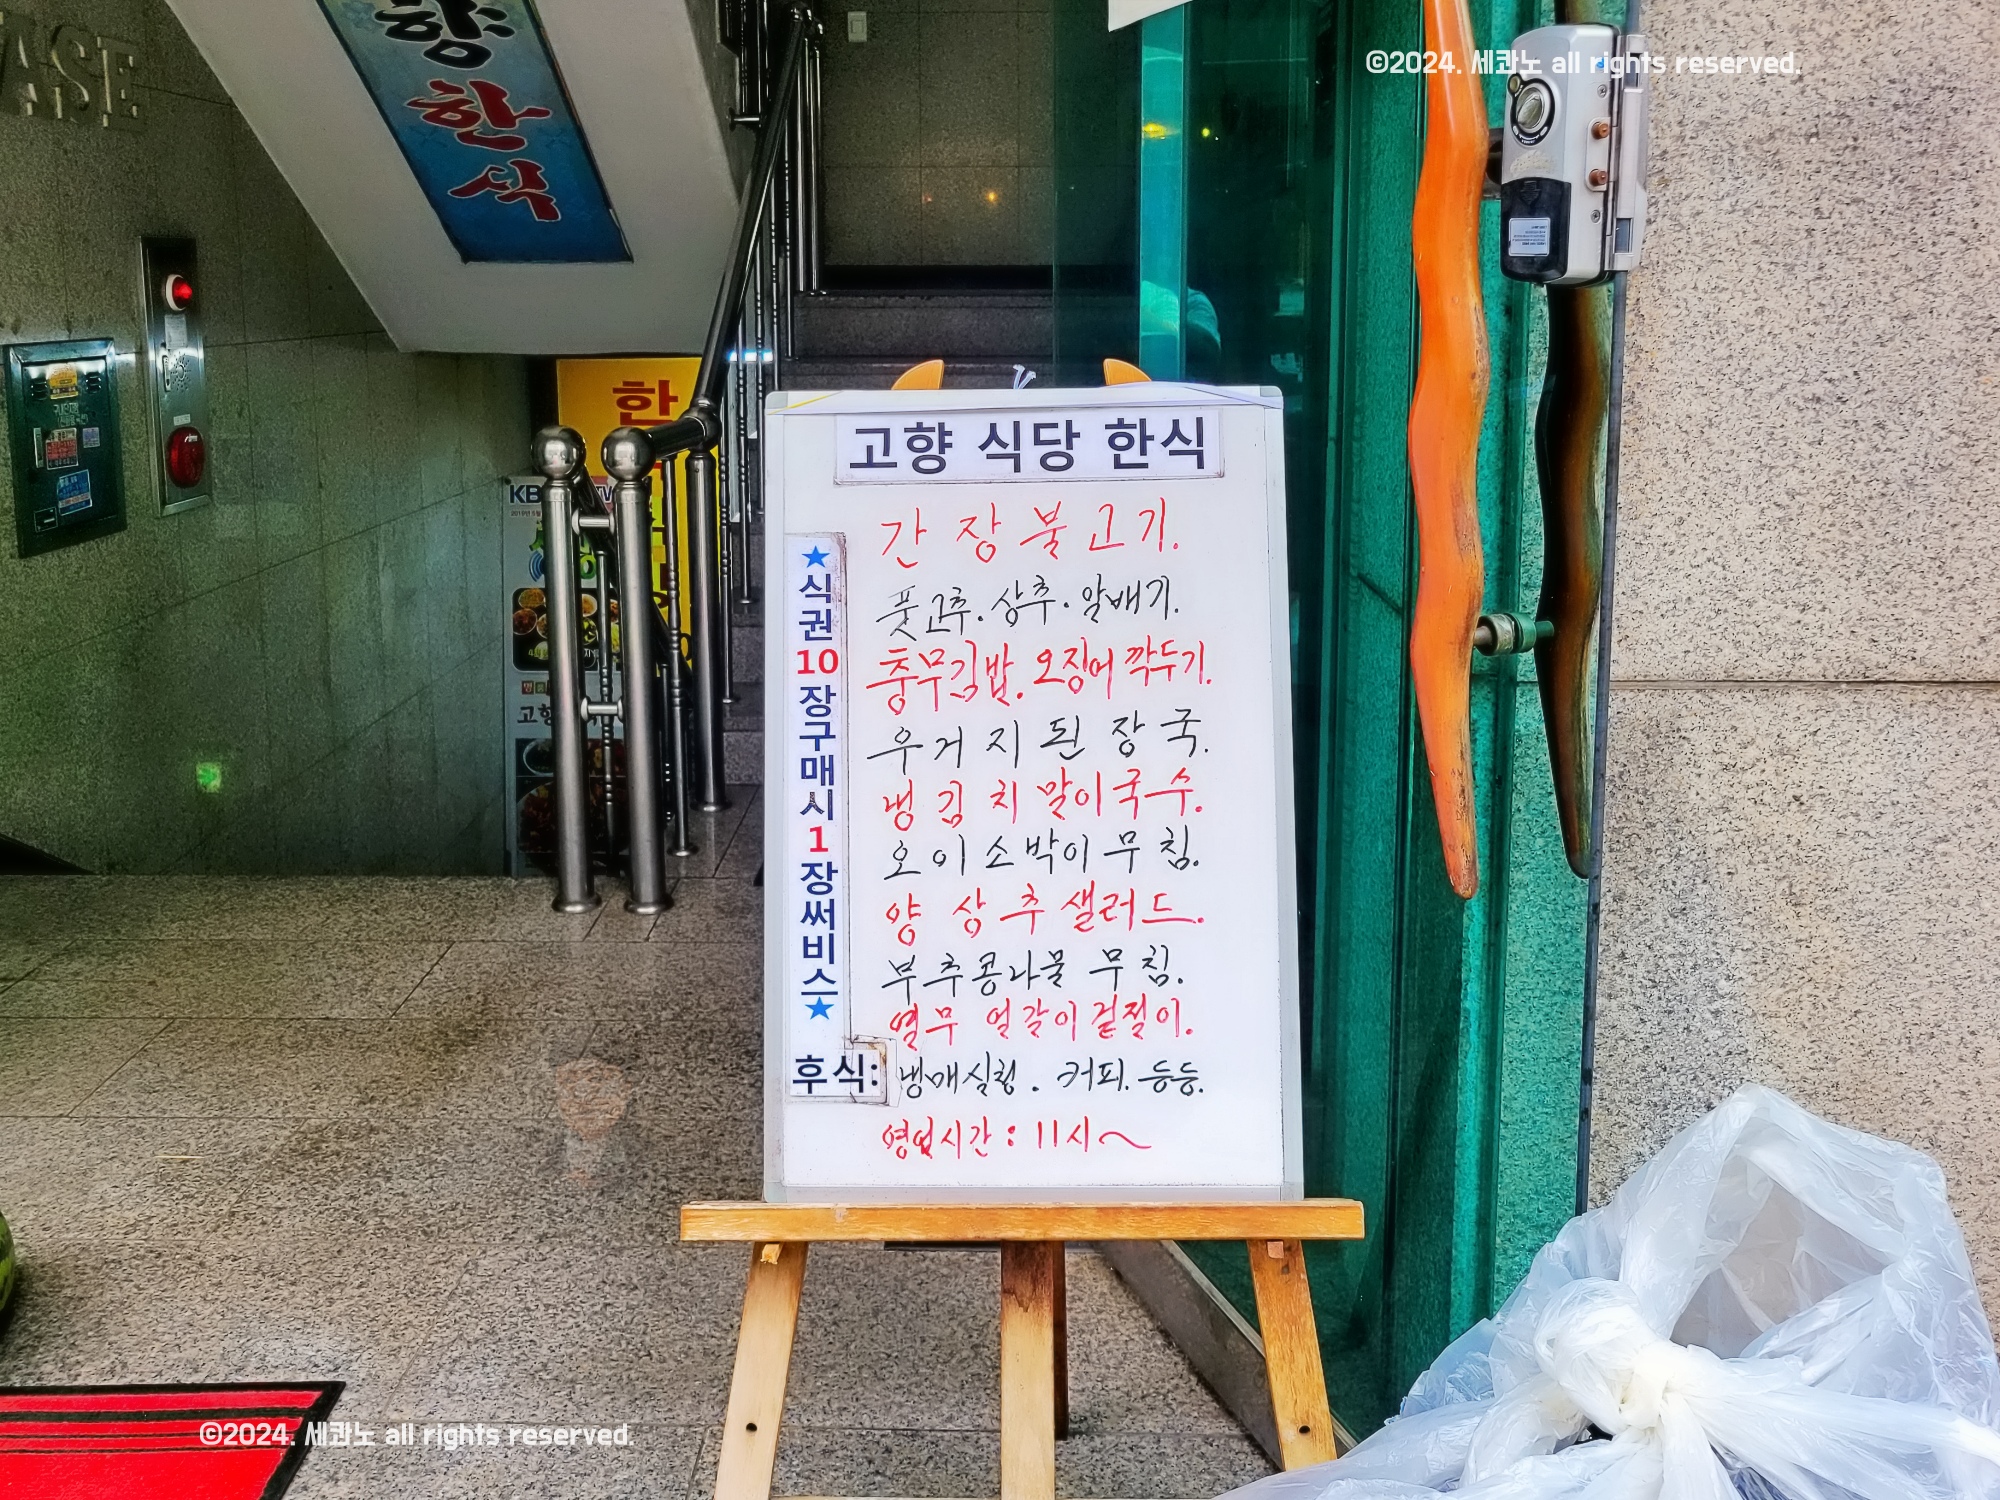 ©2024. 세콴노 all rights reserved.
향
한
식
고향 식당 한식
간장불고기.
풋고추.상추.알배기.
충무김밥. 오징어깍두기.
우거지된장국.
냉김치말이국수.
오이소박이무침.
양상추샐러드.
부추콩나물 무침.
열무 얼갈이겉절이.
★식권10장구매시1장써비스★
후식: 냉매실청. 커피. 등등.
영업시간: 11시~
한
KB
고향
ASE
©2024. 세콴노 all rights reserved.